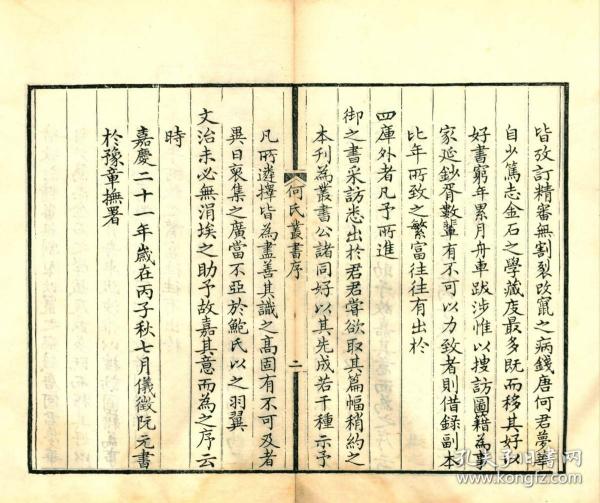 皆攷訂精審無割裂改竄之病錢唐何君夢華
自少篤志金石之學藏庋最多既而移其好以
好書窮年累月舟車跋涉惟以搜訪圖籍為事
家延鈔胥數輩有不可以力致者則借録副本
比年所致之繁富往往有出於
四庫外者凡予所進
御之書采訪悉出於君君嘗欲取其篇幅稍約之
本刊為叢書公諸同好以其先成若干種示予
何氏叢書序
二
凡所遴擇皆為盡善其識之高固有不可及者
異日裒集之廣當不亞於鮑氏以之羽翼
文治未必無涓埃之助予故嘉其意而為之序云
時
嘉慶二十一年歲在丙子秋七月儀徵阮元書
於豫章撫署
孔夫子旧书网
book.kongfz.com